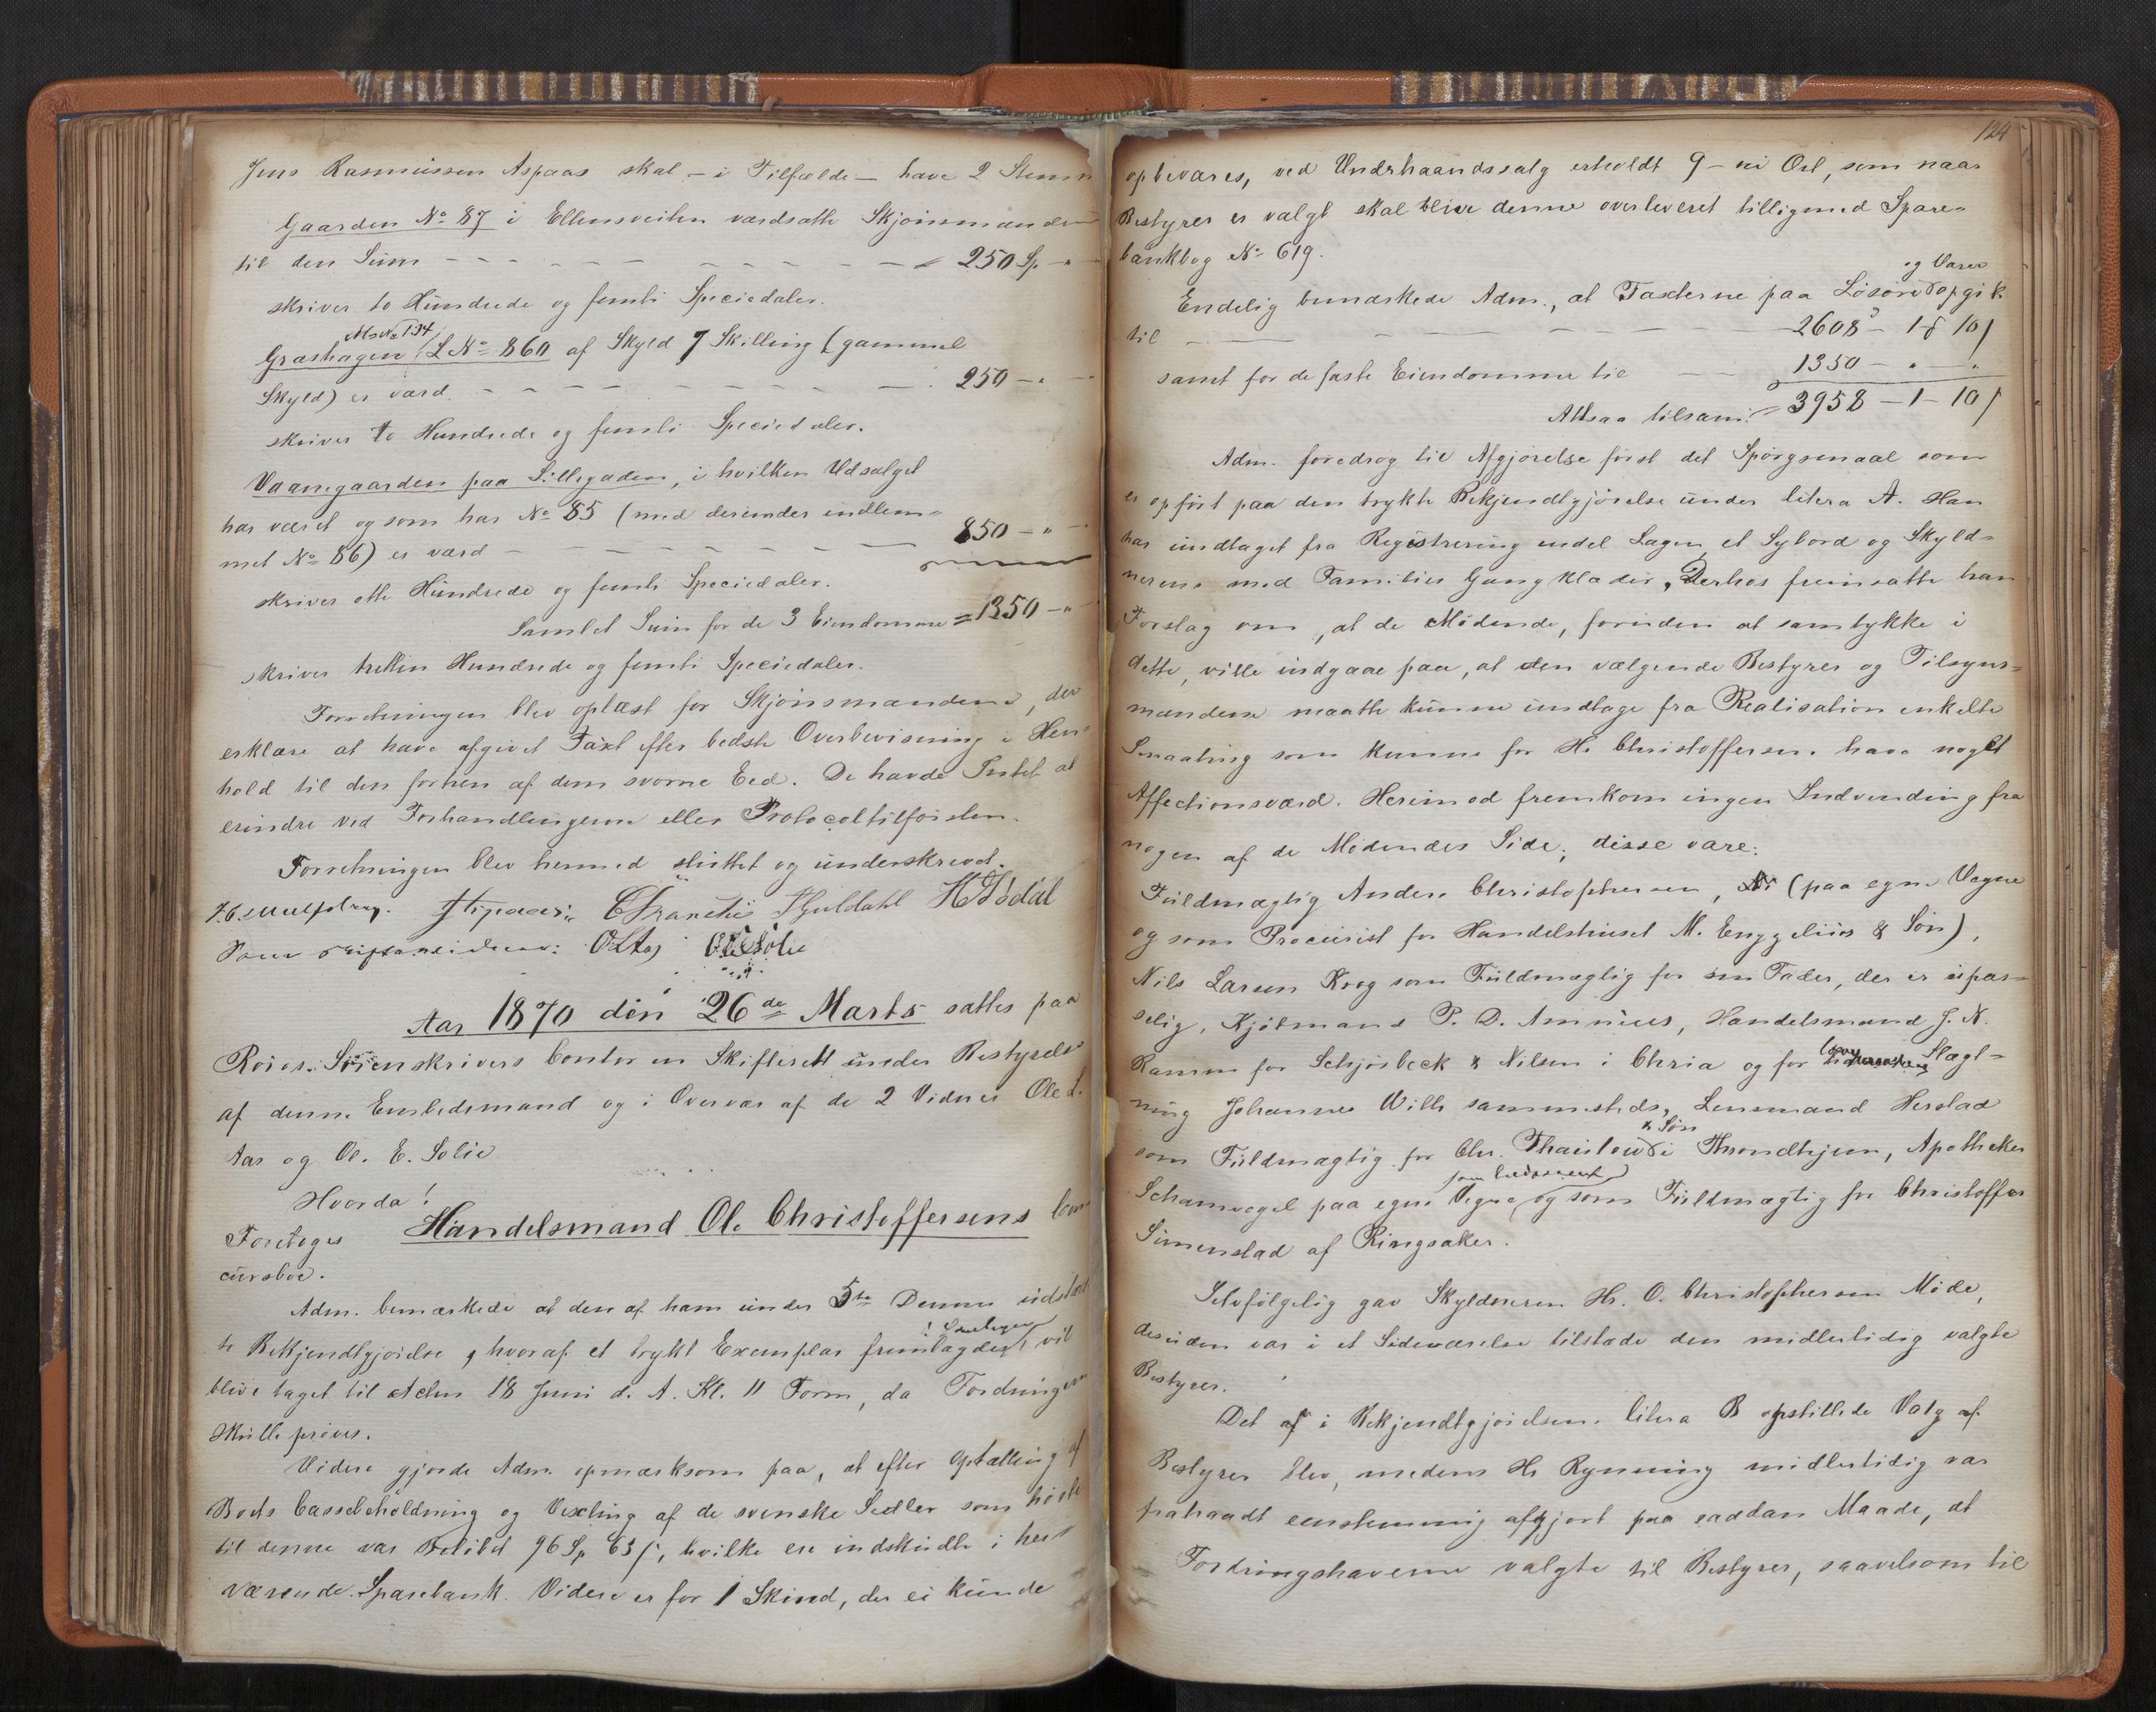 Jens Rasmussen Aspaas skal – i Tilfælde – have 2 Stemm
Gaarden No 87 i Ellensveiten værdsatte Skjønsmænden
til den Sum – – – – – – – – 250 Sp – "
skriver to Hundrede og femti Speciedaler.
M. No 134
Græshagen L No 860 af Skyld 7 Skilling (gammel
Skyld) er værd. – – – – – – – – 250 – " –
skriver to Hundrede og femti Speciedaler.
Vaaningaarden paa Lillegaden, i hvilken Udsalget
har været og som har No 85 (med derunder indlem=
met No 86) er værd – – – – – – 850 – " –
skriver otte Hundrede og femti Speciedaler.
Samlet Sum for de 3 Eiendomme = 1350 – "
skriver tretten Hundrede og femti Speciedaler.
Forretningen blev oplæst for Skjønsmændene, der
erklære at have afgivet Taxt efter bedste Overbevisning i Hen
hold til den forhen af dem svorne Eed. De havde Intet at
erindre ved Forhandlingerne eller Protocoltilførslen.
Forretningen blev hermed sluttet og underskrevet.
Som Skiftesvidner: O L Aas O E Solie
Aar 1870 den 26de Marts sattes paa
Røros Sorenskrivers Contor en Skifteret under Bestyrelse
af denne Embedsmand og i Overvær af de 2 Vidner Ole L.
Aas og Ol. E. Solie
Hvorda!
Foretoges Handelsmand Ol. Christoffersens Con
cursboe.
Adm. bemærkede at den af ham under 5te Dennes udstæd
te Bekjendtgjørelse, hvoraf et trykt Exemplar fremlagdes, vil
blive taget til Actens 18 Juni d. A. Kl. 11 Form, da Fordringerne
skulle prøves.
Videre gjorde Adm. opmærksom paa, at efter Optælling af
Boets Cassebeholdning og Vexling af de svenske Sedler som hørte
til denne var Beløbet 96 Sp 63 s, hvilke ere indskudte i her
værende Sparebank. Videre er for 1 Skind, der ei kunde
124
opbevares, ved Underhaandssalg erholdt 9 – ni Ort, som naar
Bestyrer er valgt skal blive denne overleveret tilligemed Spare=
bankbog No 619.
og Varer
Endelig bemærkede Adm., at Taxterne paa Løsøre opgik
til – – – – – 2608 – 1 – 10 s
samt for de faste Eiendomme til – – 1350 – " – "
Altsaa tilsam: = 3958 – 1 – 10 s
Adm. foredrog til Afgjørelse først det Spørgsmaal som
er opført paa den trykte Bekjendtgjørelse under litera A. Han
har undtaget fra Registrering endel Lagen, et Sybord og Skyld=
nerens med Families Gangklæder, Derhos fremsatte han
Forslag om, at de Mødende, foruden at samtykke i
dette, ville indgaae paa, at den vælgende Bestyrer og Tilsyns=
mændene maatte kunne undtage fra Realisation enkelte
Smaating som kunne for Hr Christoffersen have noget
Affectionsværd. Herimod fremkom ingen Indvending fra
nogen af de Mødendes Side; disse vare:
Fuldmægtig Anders Christophersen, (paa egne Vegne
og som Procurist for Handelshuset M. Engzelius & Søn),
Nils Larsen Krog som Fuldmægtig for sin Fader, der er upas=
selig, Kjøbmand P. D. Amnéus, Handelsmand J. N.
Ramm for Schjørbeck & Nilsen i Chria og for Slagt=
ning Johannes With sammesteds, Lensmand Herstad
& Søn
som Fuldmægtig for Chr. Thaulow i Throndhjem, Apotheker
Schamvogel paa egne Vegne og som Fuldmægtig for Christoffer
Simenstad af Ringsaker.
Selvfølgelig gav Skyldneren Hr. O. Christophersen Møde,
desuden var i et Sideværelse tilstæde den midlertidig valgte
Bestyrer.
Det af i Bekjendtgjørelsens litera B opstillede Valg af
Bestyrer blev, medens Hr Rynning midlertidig var
fratraadt eenstemmig afgjort paa saadan Maade, at
Fordringshaverne valgte til Bestyrer, saavelsom til